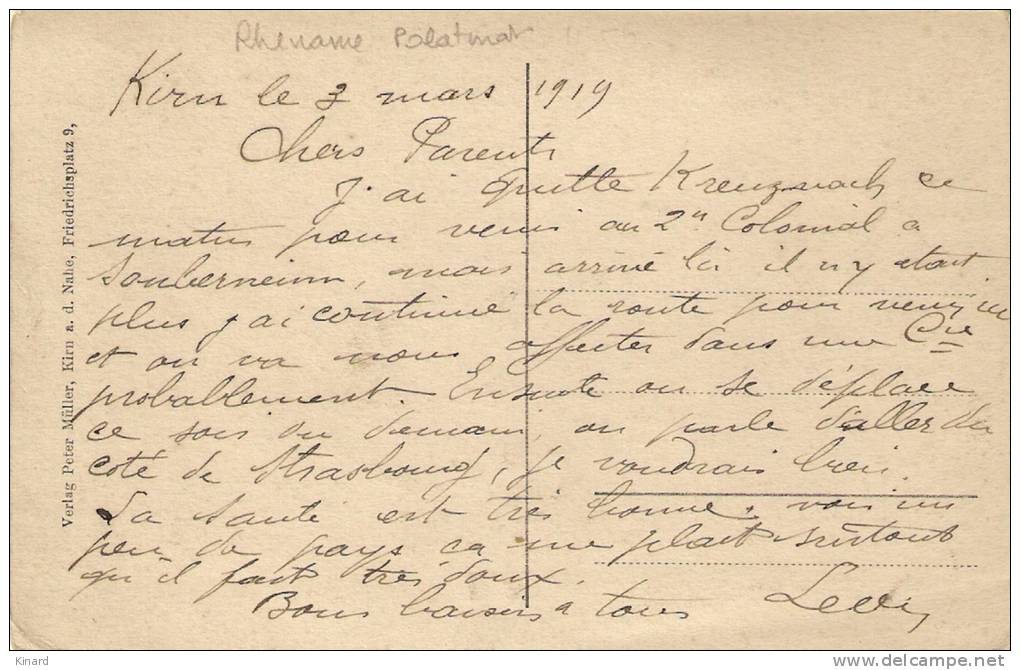 Rhename Palatinat
Kirn le 3 mars 1919
Chers Parents
J'ai quitté Kreuznach ce
matin pour venir au 2e Colonial a
Soberneim, mais arrivé là il n'y etait
plus j'ai continué la route pour venir ici
et on va nous affecter dans une Cie
proballement. Ensuite on se déplace
ce soir ou demain, on parle d'aller du
coté de Strasbourg, je voudrais bien.
La santé est très bonne, voir un
peu de pays ca me plait surtout
qu'il fait très doux.
Bons baisers a tous
Verlag Peter Müller, Kirn a. d. Nahe, Friedrichsplatz 9,
Kinard
www.delcampe.net